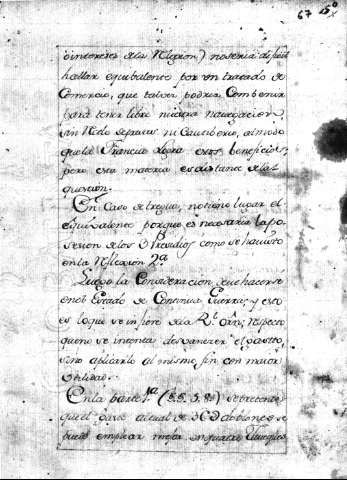 67 15º
ointereses de la Nacion) no seria dificil
hallar equibalente por un tratado de
Comercio, que talvez podria Combenir
para tener libre nuestra navegacion,
sin Riesgo de presas ni Cautiberio, al modo
que la Francia logra estos beneficios,
pero esta materia es distante de la
question.
En Caso de tregua, no tiene lugar el
equivalente porque es necesaria la po
sesion de los 3 Presidios como se ha visto
en la Reflexion 2ª
Luego la Consideracion deve hacerse
en el Estado de Continua Guerra; y esto
es lo que se infiere de la Rl Orn; Respecto
que no se intenta desvanecer el gasto,
sino aplicarlo al mismo fin con maior
utilidad.
En la parte 1ª (§.§. 5. 8º) se
que el gasto actual de doblones se
puede emplear mejor en quatro